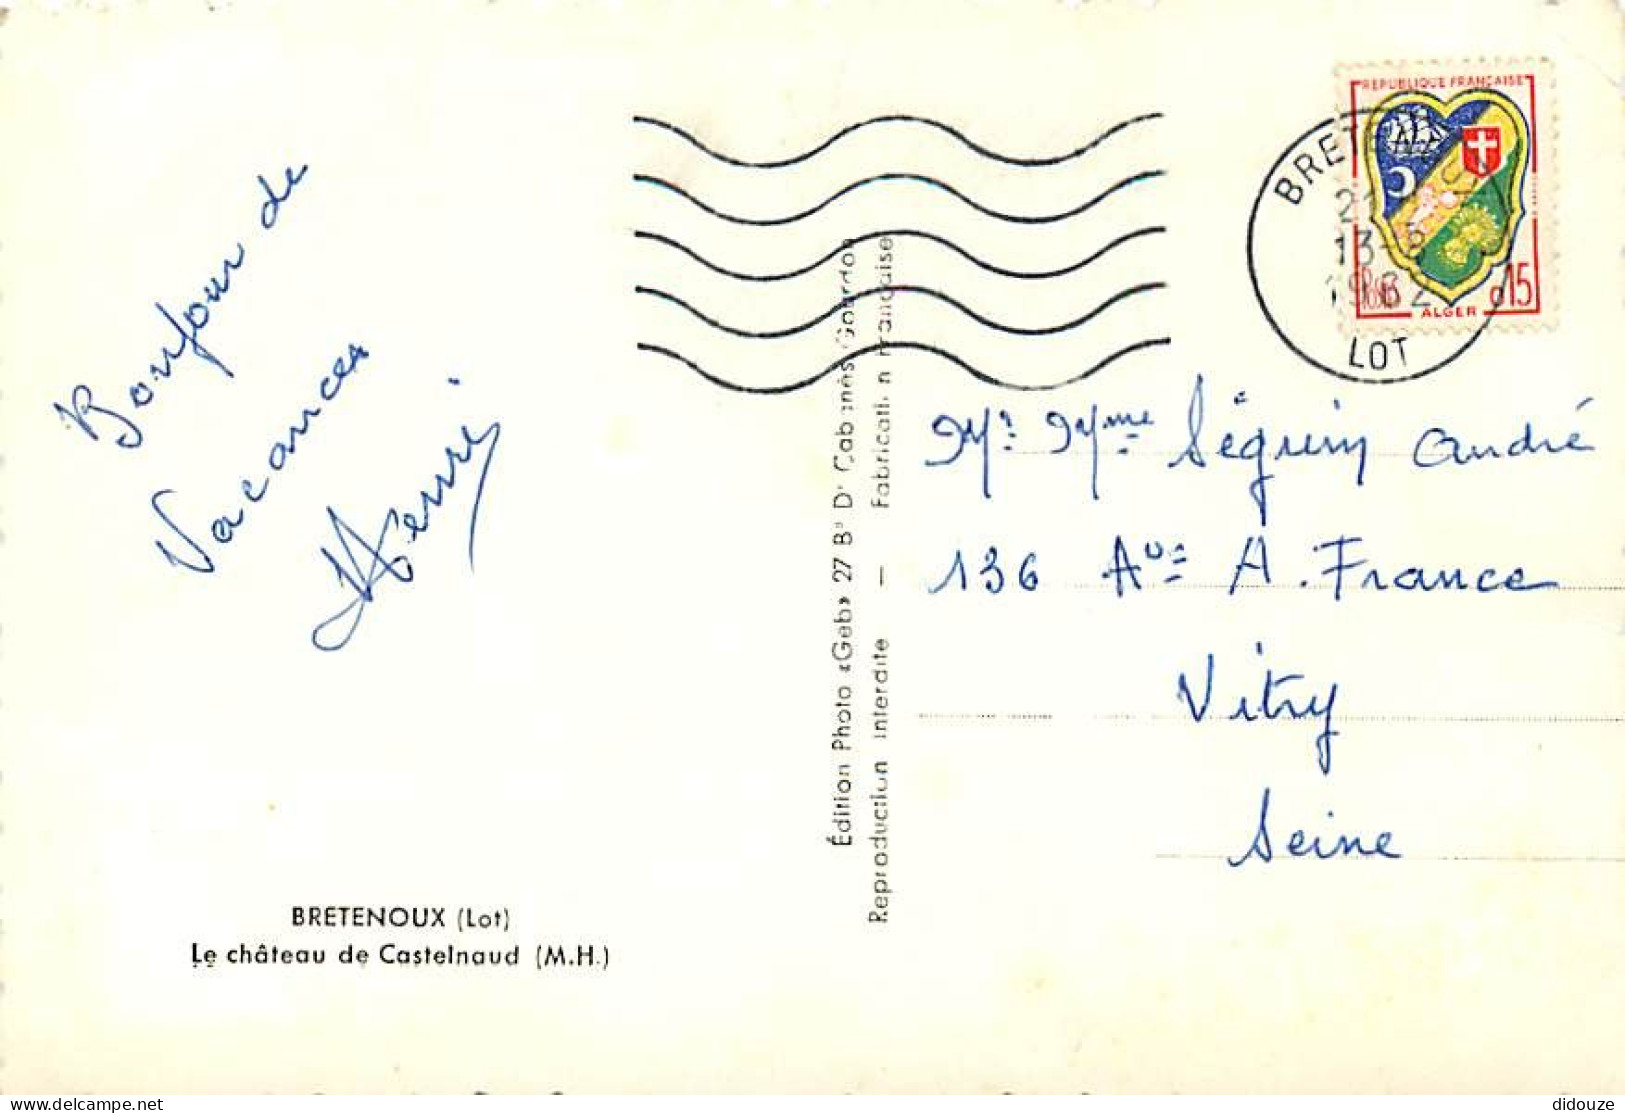 Bonjour de
Vacances
Henri
BRETENOUX (Lot)
Le château de Castelnaud (M.H.)
Édition Photo «Geb» 27 Bd Dr Cabanès Gourdon
Reproduction interdite — Fabrication Française
REPUBLIQUE FRANÇAISE
Postes
0,15
ALGER
13-5
1962
LOT
Mr Mme Séguin André
136 Ave A. France
Vitry
Seine
delcampe.net
didouze